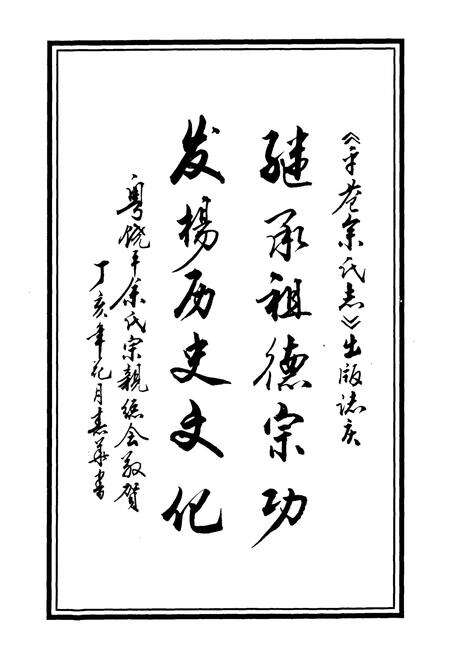 《平苍余氏志》出版志庆
继承祖德宗功
发楊历史文化
粤饶平余氏宗親總会敬贺
丁亥年花月喜華書